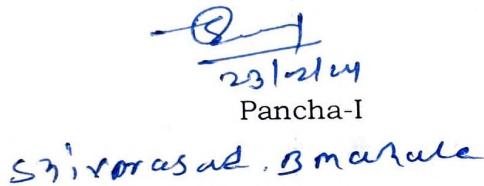 23/02/24
Pancha-I
Shivprasad. B mahale